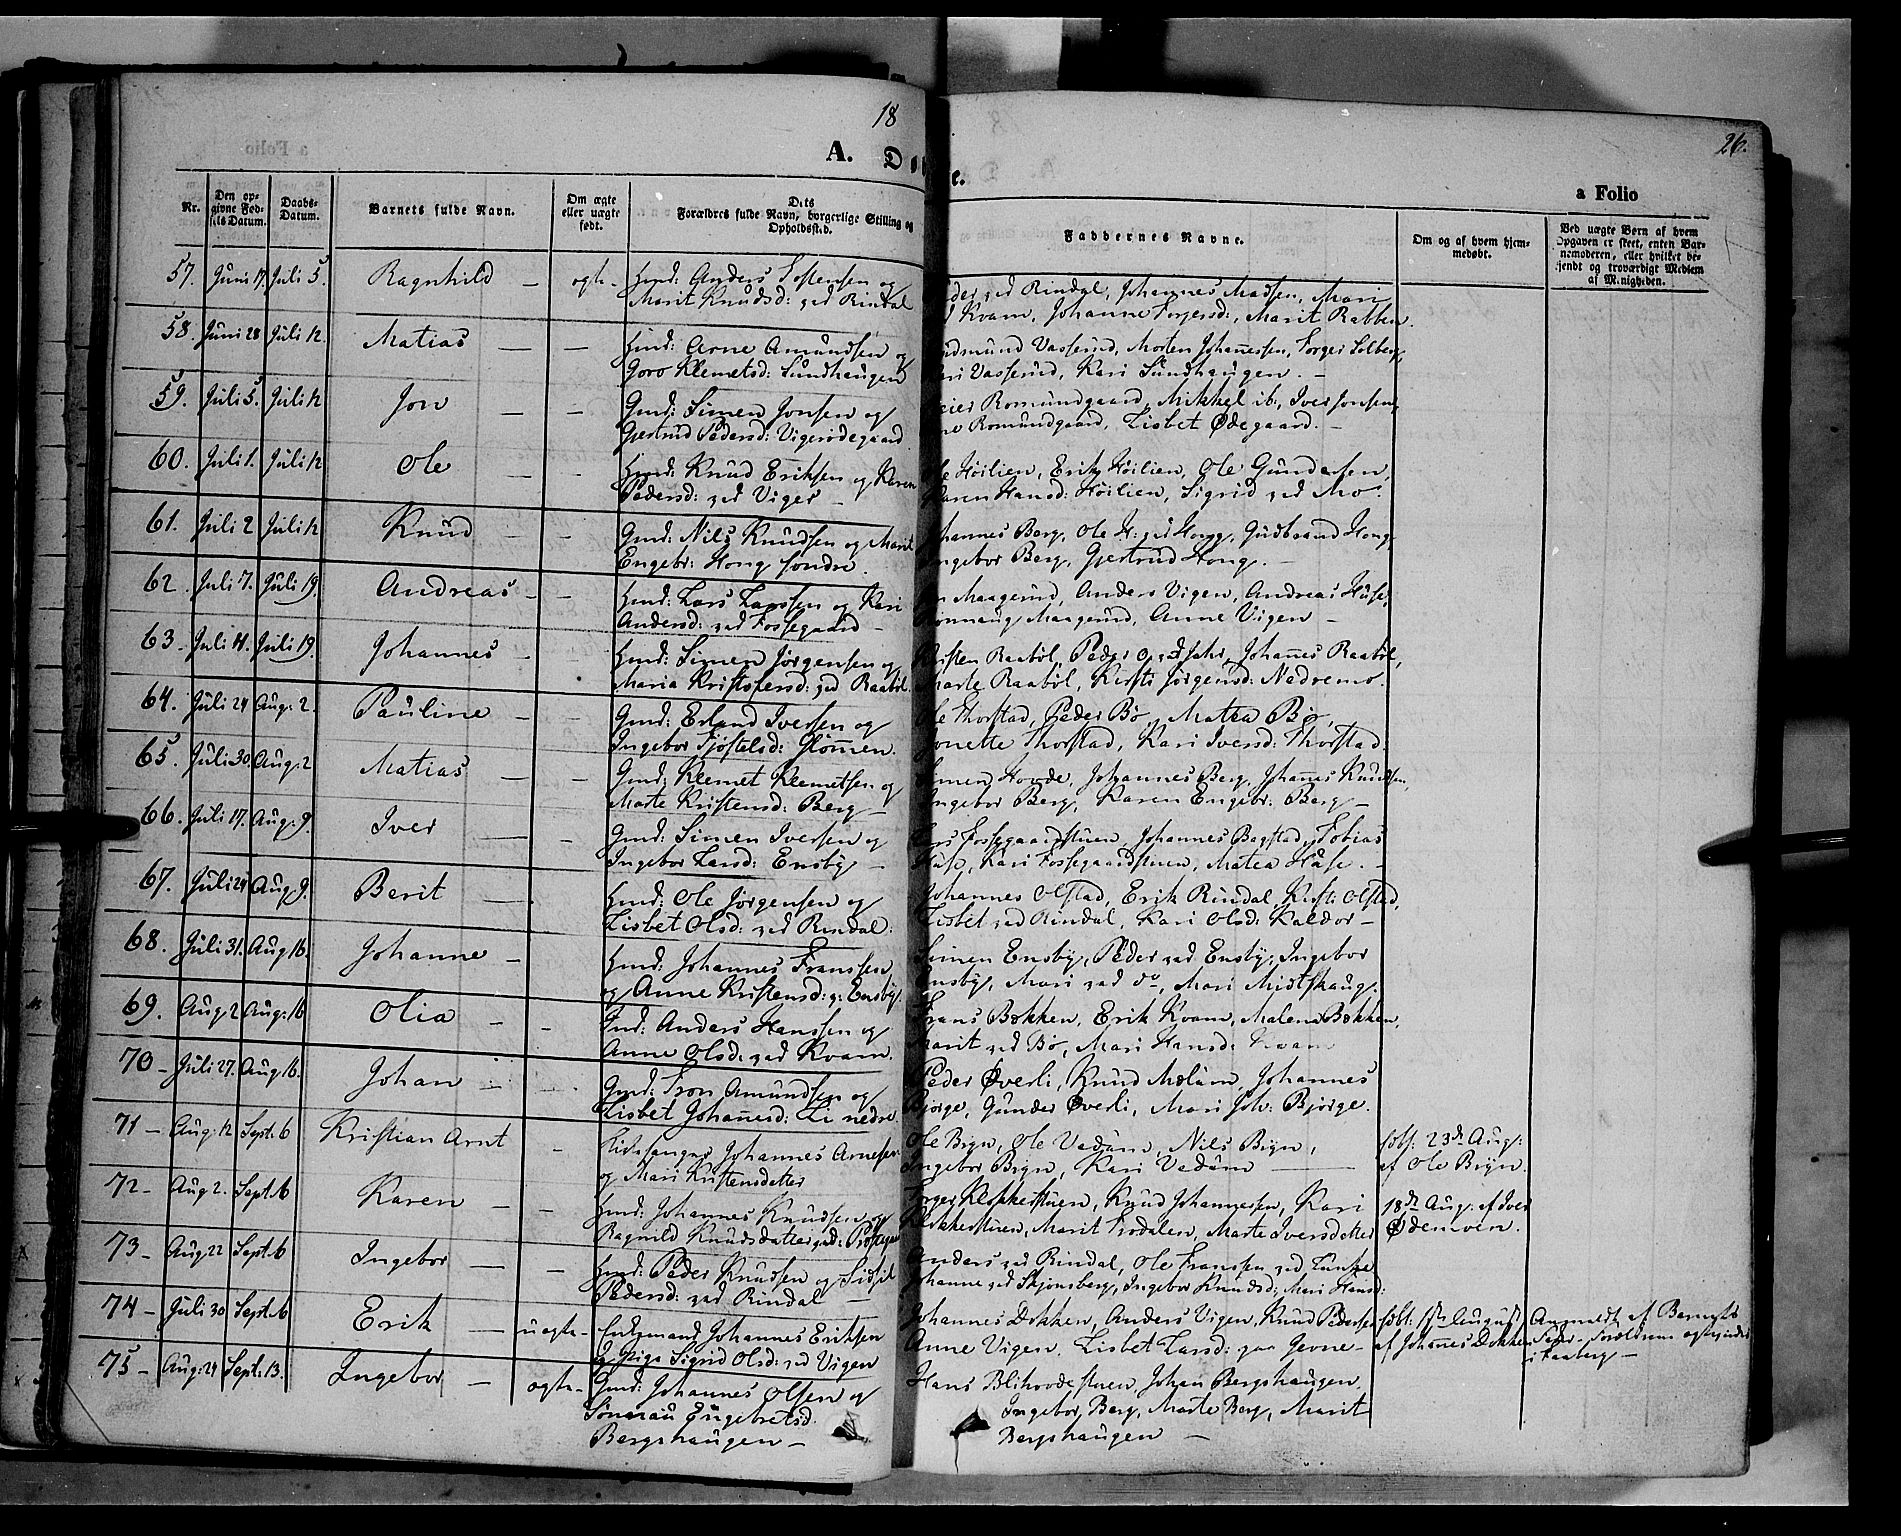 18
26.
A. D
e.
a Folio
Nr.
Den op-
givne Fød-
sels Datum.
Daabs-
Datum.
Barnets fulde Navn.
Om ægte
eller uægte
født.
Dets
Forældres fulde Navn, borgerlige Stilling og
Opholdssted.
Faddernes Navne.
Om og af hvem hjem-
medøbt.
Ved uægte Børn af hvem
Opgaven er skeet, enten Bar-
nemoderen, eller hvilket be-
kjendt og troværdigt Medlem
af Menigheden.
57. Juni 17. Juli 5. Ragnhild — ægte - Hmd: Anders Tostensen og
Marit Knudsd: ved Rindal
ved Rindal, Johannes Madsen, Mari
Kvam, Johanne Torgersd:, Marit Rabben.
58. Juni 28 Juli 12. Matias — — Hmd: Arne Amundsen og
Goro Klemetsd: Sundhaugen
Vasserud, Morten Johannessen, Torger Solberg,
Vasserud, Kari Sundhaugen. -
59. Juli 5. Juli 12 Jon — — Gmd: Simen Jonsen og
Gjertrud Pedersd: Vigerødegaard
Romundgaard, Mikkel ib:, Iver Jonsen,
Romundgaard, Lisbet Ødegaard. -
60. Juli 1. Juli 12 Ole — — Hmd: Knud Eriksen og Karen
Pedersd: ved Viger -
Høilien, Erik Høilien, Ole Gundersen,
Karen Hansd: Høilien, Sigrid ved Mo.
61. Juli 2 Juli 12 Knud — — Gmd: Nils Knudsen og Marit
Engebr: Hong søndre.
Johannes Berg, Ole H: ved Hong, Gudbrand Hong,
Ingebor Berg, Gjertrud Hong. -
62. Juli 7. Juli 19. Andreas - — Hmd: Lars Larssen og Kari
Andersd: ved Fossegaard -
Maagerud, Anders Vigen, Andreas Huse,
Rønnaug Maagerud, Anne Vigen -
63 - Juli 11. Juli 19. Johannes - — Hmd: Simen Jørgensen og
Maria Kristofersd: ved Raabøl.
Raabøl, Peder Johannes Raabøl,
Marte Raabøl, Kirsti Jørgensd: Nedremo.
64. Juli 24 Aug: 2. Pauline - — Gmd: Erland Iversen og
Ingebor Tjøstelsd: Glømmen.
Ole Thorstad, Peder Bø, Matea Bø,
Jonette Thorstad, Kari Iversd: Thorstad.
65. Juli 30. Aug: 2 Matias — — Gmd: Klemet Klemetsen og
Marte Kristensd: Berg -
Simen Hovde, Johannes Berg, Johannes Knudsen,
Ingebor Berg, Karen Engebr: Berg -
66. Juli 17. Aug: 9. Iver — — Gmd: Simen Iversen og
Ingebor Larsd: Ensby -
Lars Fossegaardstuen, Johannes Bagstad, Tobias
Huse, Kari Fossegaardstuen, Matea Huse. -
67. Juli 24 Aug: 9. Berit — — Hmd: Ole Jørgensen og
Lisbet Olsd: ved Rindal:
Johannes Olstad, Erik Rindal, Kirsti Olstad,
Lisbet ved Rindal, Kari Olsd: Kaldor -
68. Juli 31. Aug 16. Johanne - Hmd: Johannes Franssen,
og Anne Kristensd: v: Ensby.
Simen Ensby, Peder ved Ensby, Ingebor
Ensby, Mari ved do, Mari Midtskaug.
69. Aug: 2 Aug: 16 Olia — — Ind: Anders Hanssen og
Anne Olsd: ved Kvam.
Frans Bakken, Erik Kvam, Malena Bakken,
Marit ved Bø, Mari Hansd: Kvam
70 - Juli 27. Aug 16. Johan - — Gmd: Tron Amundsen og
Lisbet Johannesd: Li nedre.
Peder Øverli, Knud Mælum, Johannes
Bjørge, Gunder Øverli, Mari Joh: Bjørge.
71 - Aug: 12 Sept: 6 Kristian Arnt - Johannes Arnesen
og Mari Kristensdatter
Ole Bryn, Ole Vedum, Nils Bryn,
Ingebor Bryn, Kari Vedum —
døbt: 23de Aug:
af Ole Bryn.
72 - Aug 2. Sept: 6 Karen — — Hmd: Johannes Knudsen og
Ragnild Knudsdatter ved
Torger Klokkestuen, Knud Johannessen, Kari
Klokkestuen, Marit Frodalen, Marte Iversdatter
18de Aug. af Iver
Ødenvin.
73 - Aug 22 Sept: 6 Ingebor — — Hmd: Peder Knudsen og Sidsel
Pedersd: ved Rindal —
Anders ved Rindal, Ole Franssen ved Lunke
Johanne ved Skjønsberg, Ingebor Knudsd: Mari Hansd:
74 - Juli 30 Sept: 6 Erik — uægte - Enkemand Johannes Eriksen
og pige Sigrid Olsd: ved Vigen
Johannes Dokken, Anders Vigen, Knud Pedersen
Anne Vigen, Lisbet Larsd: paa Jevne -
døbt: 1ste August
af Johannes Dokken
Anmeldt af Barnets
Fader. Forældrene
i Faaberg —
75 - Aug: 24 Sept: 13. Ingebor — ægte - Gmd: Johannes Olsen og
Engebretsd.
Bergshaugen —
Hans Blihovdestuen, Johan Bergshaugen,
Ingebor Berg, Marte Berg, Marit
Bergshaugen —